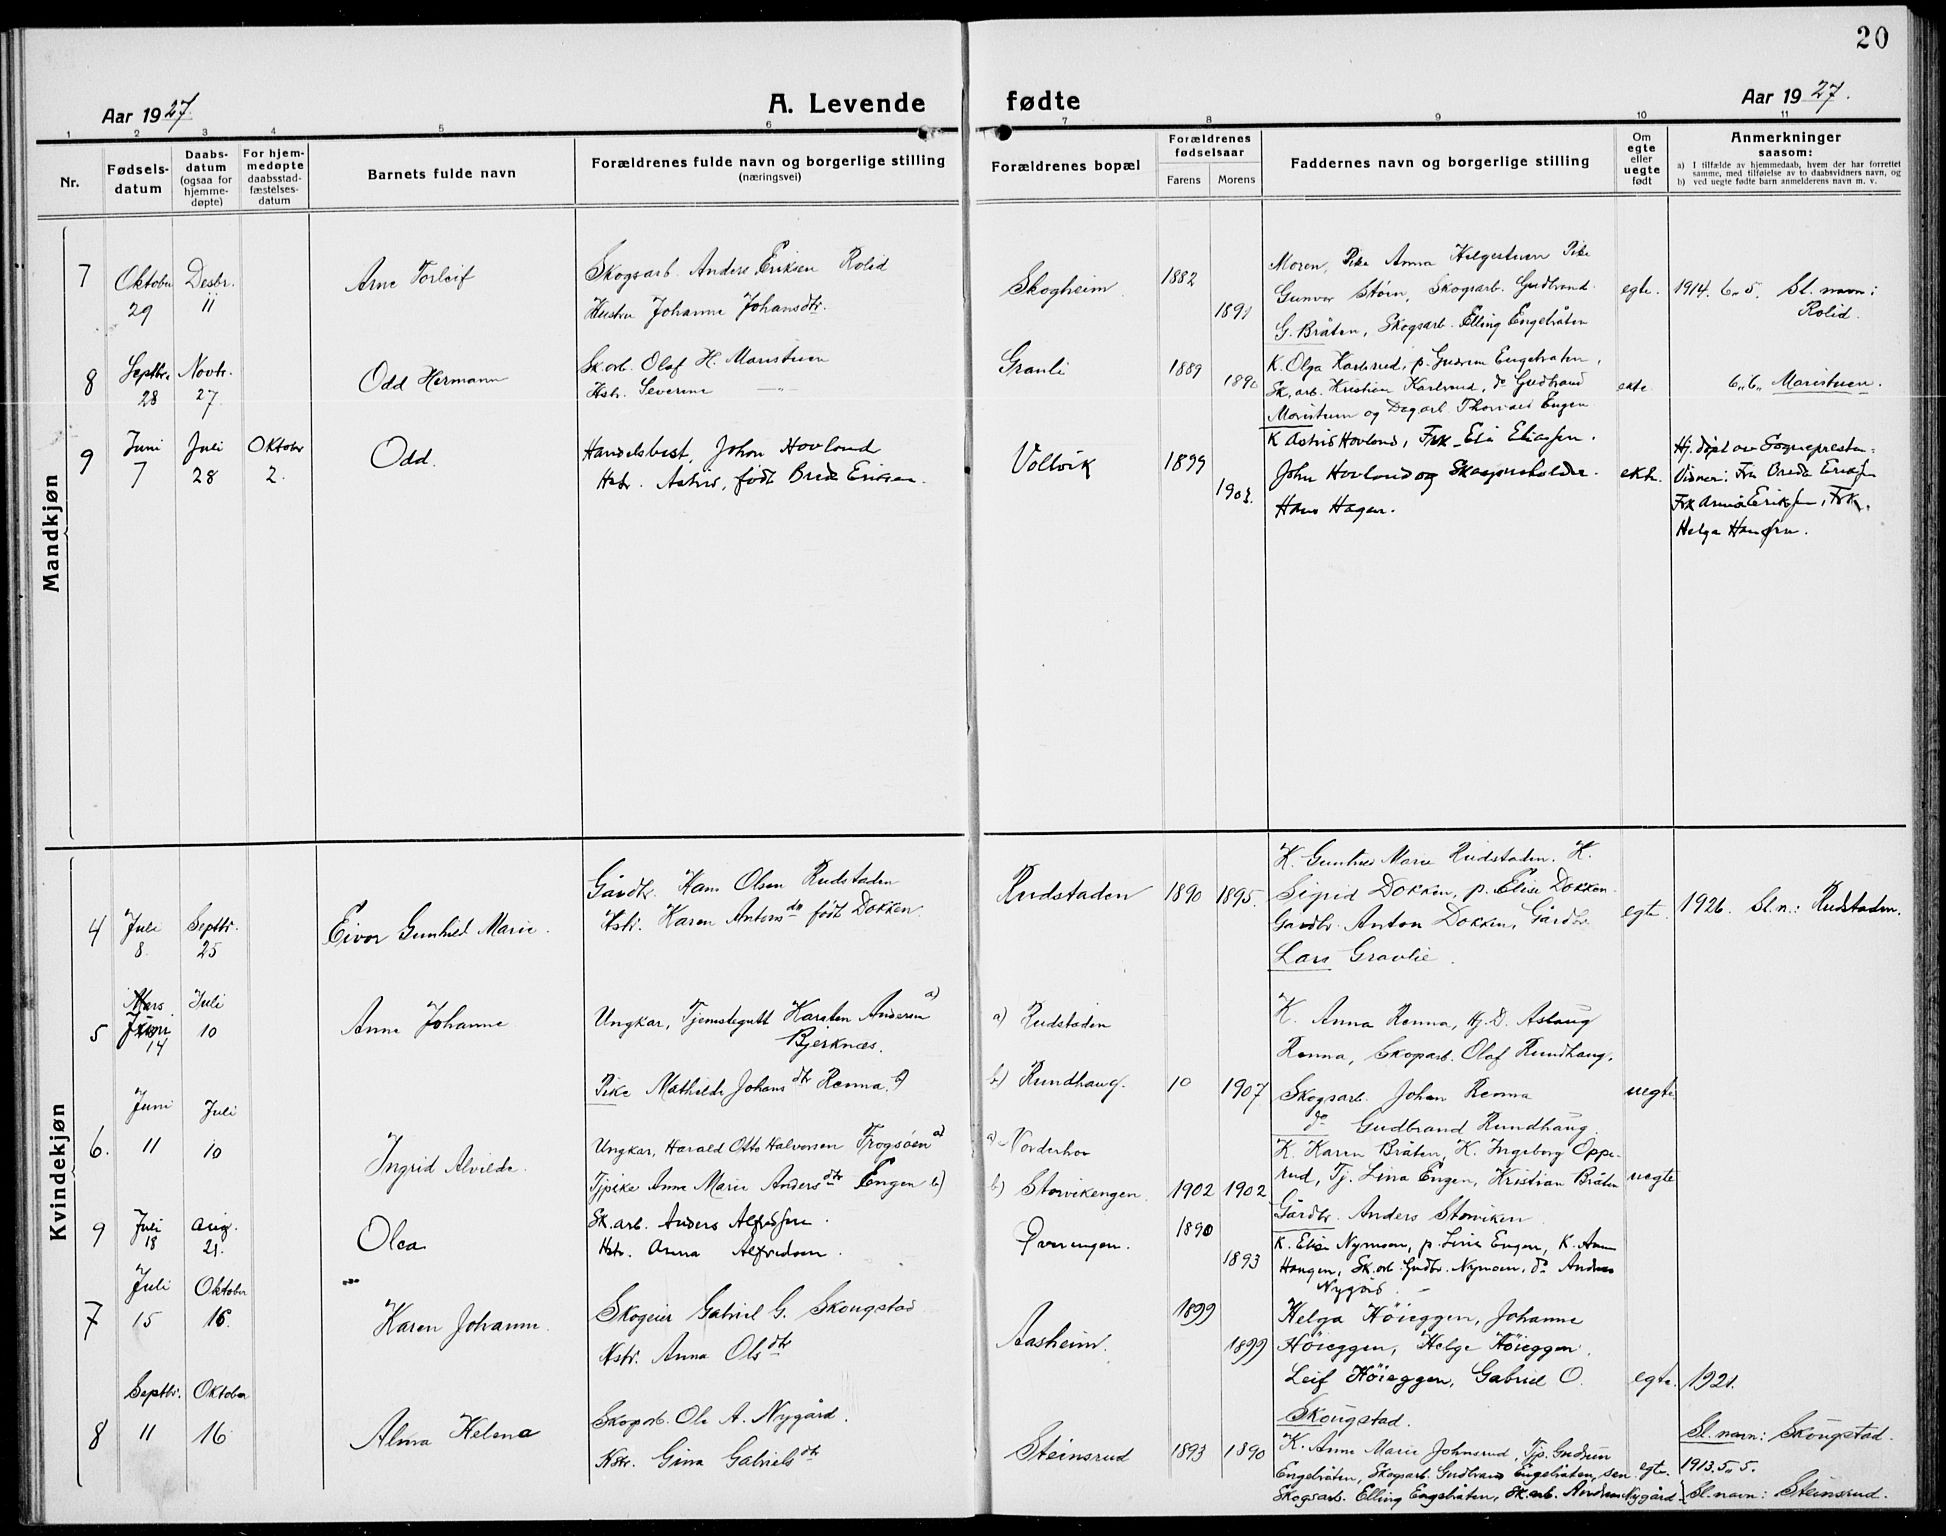 20
Aar 1927.
A. Levende fødte
Aar 1927.
1 2 3 4 5 6 7 8 9 10 11
Nr.
Fødsels-
datum
Daabs-
datum
(ogsaa for
hjemme-
døpte)
For hjem-
medøpte
daabsstad-
fæstelses-
datum
Barnets fulde navn
Forældrenes fulde navn og borgerlige stilling
(næringsvei)
Forældrenes bopæl
Forældrenes
fødselsaar
Farens Morens
Faddernes navn og borgerlige stilling
Om
egte
eller
uegte
født
Anmerkninger
saasom:
a) I tilfælde av hjemmedaab, hvem der har forrettet
samme, med tilføielse av to daabsvidners navn, og
b) ved uegte fødte barn anmelderens navn m. v.
Mandkjøn
7
Oktober
29
Desbr.
11
Arne Torleif
Skogsarb. Anders Eriksen Rolid
Hustru Johanne Johansdtr.
Skogheim
1882
1891
Moren, Pike Anna Helgestuen Pike
Gunvor Støen, Skogsarb. Gudbrand
G. Bråten, Skogsarb. Elling Engebråten
egte.
1914. 6.,5. Sl. navn:
Rolid.
8
Septbr.
28
Novbr.
27.
Odd Hermann
Sk.arb. Olaf H. Maristuen
Hstr. Severine —"—
Granli
1889
1890
K. Olga Karlsrud, p. Gudrun Engebråten,
Sk.arb. Kristian Karlsrud, do Gudbrand
Maristuen og Dagarb. Thorvald Engen
ekte
6.,6., Maristuen.
9
Juni
7
Juli
28
Oktober
2.
Odd.
Handelsbest. Johan Hovland
Hstr. Astrid, født Brede Eriksen.
Vollvik
1899
1903.
K Astrid Hovland, Frk. Else Eliassen.
John Hovland og Skysseholder
Hans Hagen.
ekte.
Hj. døpt av Sognepresten.
Vidner: Fru Breda Eriksen
Frk Anna Eriksen, Frk.
Helga Hansen.
Kvindekjøn
4
Juli
8.
Septbr.
25
Eivor Gunhild Marie.
Gårdbr. Hans Olsen Rudstaden
Hstr. Karen Antonsdtr født Dokken.
Rudstaden
1890 1895.
K. Gunhild Marie Rudstaden. K.
Sigrid Dokken, p. Elise Dokken
Gårdbr. Anton Dokken, Gårdbr.
Lars Gravlie.
egte.
1926. Sl.n.: Rudstaden.
5
Mars
Juni
14
Juli
10
Anne Johanne
Ungkar, Tjenestegutt Karsten Andersen a)
Bjerknæs.
Pike Mathilde Johansdtr Renna. b)
a) Rudstaden
b) Rundhaug.
10 1907
K. Anna Renna, Hj. D. Aslaug
Renna, Skogsarb. Olaf Rundhaug,
Skogsarb. Johan Renna
do Gudbrand Rundhaug.
uegte.
6.
Juni
11
Juli
10
Ingrid Alvilde.
Ungkar, Harald Otto Halvorsen Frogsøen a)
Tjpike Anne Marie Andersdtr Engen b)
a) Norderhov
b) Storvikengen.
1902 1902
K. Karen Bråten, K. Ingeborg Oppe-
rud, Tj. Lina Engen, Kristian Bråten
Gårdbr. Anders Storviken
uegte
9
Juli
18
Aug.
21.
Olea
Sk.arb. Anders Alfredsen.
Hstr. Anna Alfredsen.
1890
1893
K. Else Nymoen, p. Lina Engen, K. Anna
Haugen, Sk.arb. Gudbr. Nymoen, do Anders
Nygård.
7
Juli
15
Oktober
16.
Karen Johanne.
Skogeier Gabriel G. Skougstad
Hstr. Anna Olsdtr
Aasheim.
1899
1899
Helga Höieggen, Johanne
Höieggen, Helge Höieggen.
Leif Höieggen, Gabriel O.
Skougstad.
egte.
1921.
Sl. navn: Skougstad.
8
Septbr.
11
Oktober
16
Alma Helena
Skogarb. Ole A. Nygård.
Hstr. Gina Gabrielsdtr
Steinsrud
1893 1890
K. Anne Marie Johnsrud, Tjp. Gudrun
Engebråten, Skogsarb. Gudbrand Engebråten, sen.
Skogsarb. Elling Engebråten, Sk.arb. Anders Nygård
egte.
1913. 5., 5.
Sl. navn: Steinsrud.